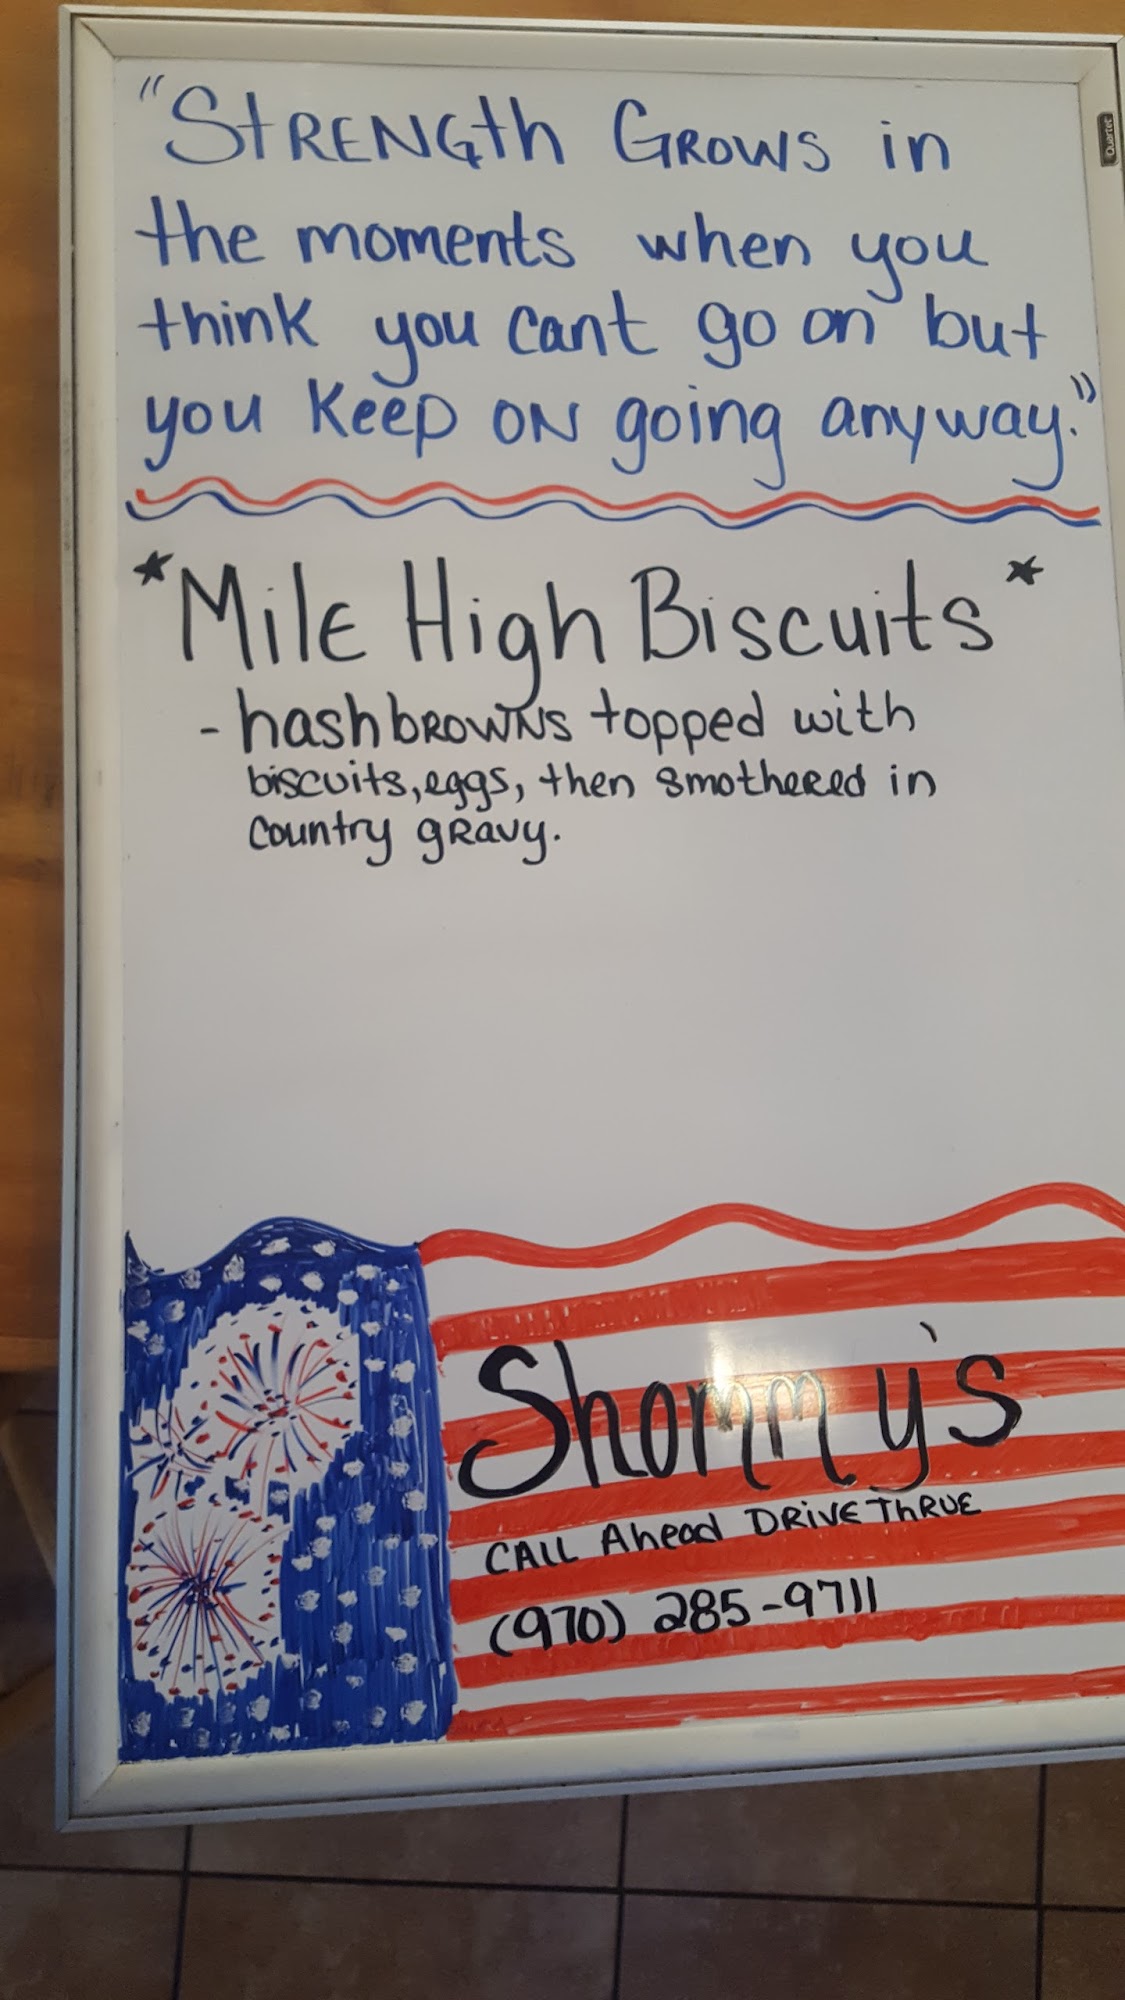 "Strength Grows in
the moments when you
think you cant go on but
you keep on going anyway."
*Mile High Biscuits*
- hashbrowns topped with
biscuits, eggs, then smothered in
country gravy.
Shommy's
Call Ahead Drive Thrue
(970) 285-9711
Quartet